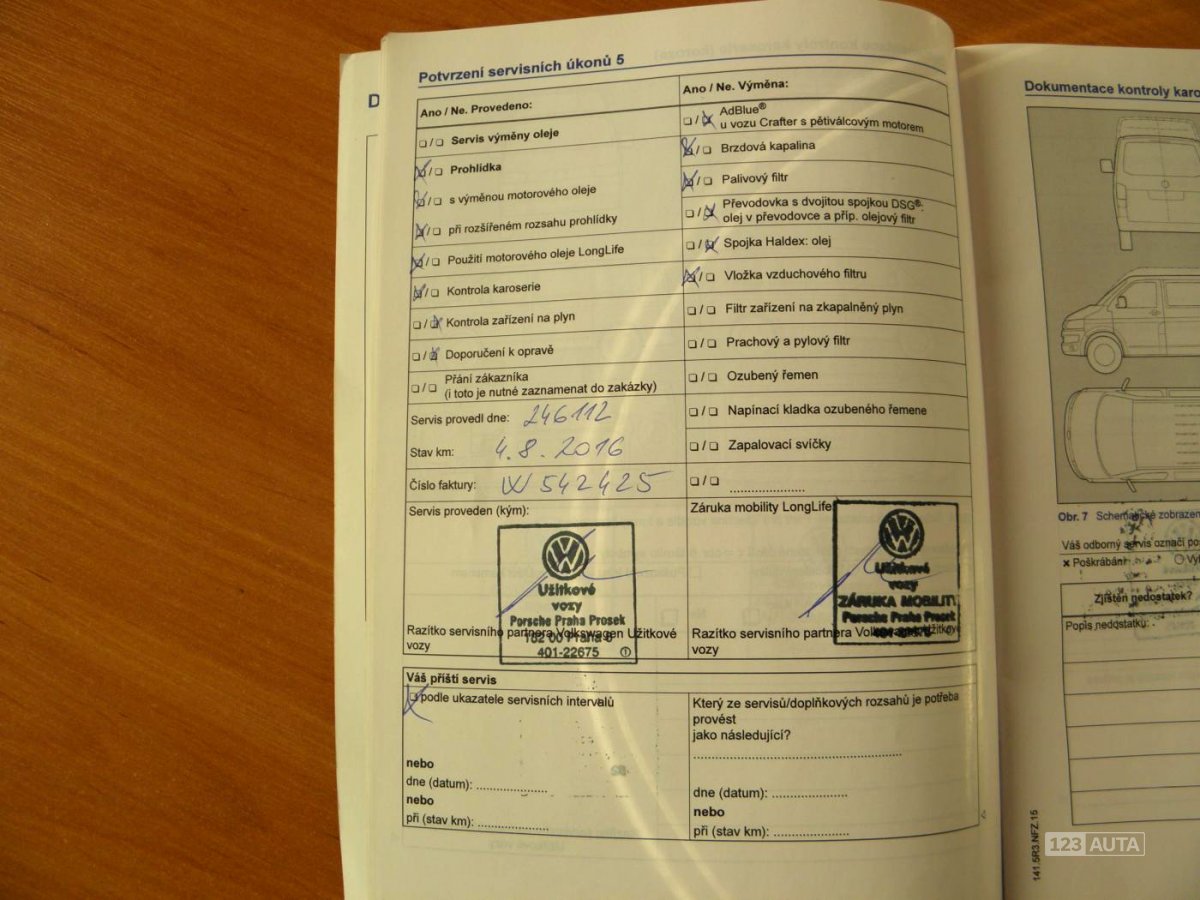 Potvrzení servisních úkonů 5
Ano / Ne. Provedeno:
/ Servis výměny oleje
/ Prohlídka
/ s výměnou motorového oleje
/ při rozšířeném rozsahu prohlídky
/ Použití motorového oleje LongLife
/ Kontrola karoserie
/ Kontrola zařízení na plyn
/ Doporučení k opravě
/ Přání zákazníka
(i toto je nutné zaznamenat do zakázky)
Servis provedl dne: 246112
Stav km: 4.8.2016
Číslo faktury: W 542425
Servis proveden (kým):
Užitkové
vozy
Porsche Praha Prosek
401-22675
Razítko servisního partnera Volkswagen Užitkové
vozy
Ano / Ne. Výměna:
/ AdBlue®
u vozu Crafter s pětiválcovým motorem
/ Brzdová kapalina
/ Palivový filtr
/ Převodovka s dvojitou spojkou DSG®:
olej v převodovce a příp. olejový filtr
/ Spojka Haldex: olej
/ Vložka vzduchového filtru
/ Filtr zařízení na zkapalněný plyn
/ Prachový a pylový filtr
/ Ozubený řemen
/ Napínací kladka ozubeného řemene
/ Zapalovací svíčky
/ ....................
Záruka mobility LongLife
Užitkové
vozy
ZÁRUKA MOBILIT
Porsche Praha Prosek
Razítko servisního partnera
vozy
Váš příští servis
podle ukazatele servisních intervalů
nebo
dne (datum): ....................
nebo
při (stav km): ....................
Který ze servisů/doplňkových rozsahů je potřeba
provést
jako následující?
............................................................
dne (datum): ....................
nebo
při (stav km): ....................
D
Dokumentace kontroly karo
Obr. 7 Schematické zobrazen
Váš odborný servis označí po
x Poškrábání
Zjištěn nedostatek?
Popis nedostatku:
141.5R3.NFZ.15
123 AUTA